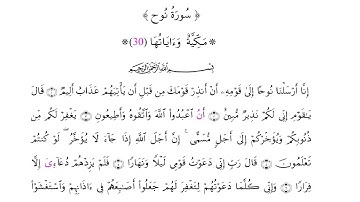 ﴿ سُورَةُ نُوحٍ ﴾
❋(مَكِّيَّةٌ وَءَايَاتُهَا (30)❋
بِسْمِ ٱللَّهِ ٱلرَّحْمَٰنِ ٱلرَّحِيمِ
إِنَّآ أَرْسَلْنَا نُوحًا إِلَىٰ قَوْمِهِۦٓ أَنْ أَنذِرْ قَوْمَكَ مِن قَبْلِ أَن يَأْتِيَهُمْ عَذَابٌ أَلِيمٌ ۝ قَالَ
يَٰقَوْمِ إِنِّى لَكُمْ نَذِيرٌ مُّبِينٌ ۝ أَنُ ٱعْبُدُوا۟ ٱللَّهَ وَٱتَّقُوهُ وَأَطِيعُونِ ۝ يَغْفِرْ لَكُم مِّن
ذُنُوبِكُمْ وَيُؤَخِّرْكُمْ إِلَىٰٓ أَجَلٍ مُّسَمًّى ۚ إِنَّ أَجَلَ ٱللَّهِ إِذَا جَآءَ لَا يُؤَخَّرُ ۖ لَوْ كُنتُمْ
تَعْلَمُونَ ۝ قَالَ رَبِّ إِنِّى دَعَوْتُ قَوْمِى لَيْلًا وَنَهَارًا ۝ فَلَمْ يَزِدْهُمْ دُعَآءِىَ إِلَّا
فِرَارًا ۝ وَإِنِّى كُلَّمَا دَعَوْتُهُمْ لِتَغْفِرَ لَهُمْ جَعَلُوٓا۟ أَصَٰبِعَهُمْ فِىٓ ءَاذَانِهِمْ وَٱسْتَغْشَوْا۟